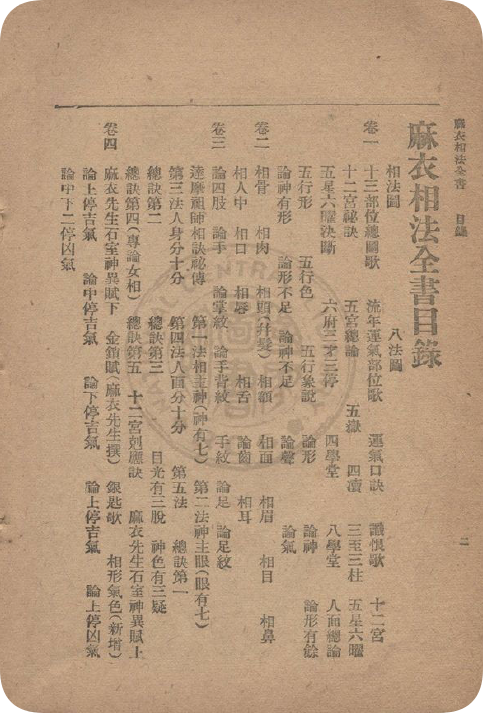 麻衣相法全書 目錄 二
麻衣相法全書目錄
相法圖 八法圖
卷一 十三部位總圖歌 流年運氣部位歌 運氣口訣 識恨歌 十二宮
十二宮秘訣 五宮總論 五嶽 四瀆 三主三柱 五星六曜
五星六曜決斷 六府三才三停 四學堂 八學堂 人面總論
五行形 五行色 五行象說 論形 論神 論形有餘
論神有形 論形不足 論神不足 論聲 論氣
卷二 相骨 相肉 相頭(幷髮) 相額 相面 相眉 相目 相鼻
相人中 相口 相唇 相舌 論齒 相耳
卷三 論四肢 論手 論掌紋 論手背紋 手紋 論足 論足紋
達摩祖師相訣祕傳 第一法相主神(神有七) 第二法神主眼(眼有七)
第三法人身分十分 第四法人面分十分 第五法 總訣第一
總訣第二 總訣第三 目光有三脫 神色有三疑
總訣第四(專論女相) 總訣第五 十二宮剋應訣 麻衣先生石室神異賦上
卷四 麻衣先生石室神異賦下 金鎖賦(麻衣先生撰) 銀匙歌 相形氣色(新增)
論上停吉氣 論中停吉氣 論下停吉氣 論上停吉氣 論上停凶氣
論中下二停凶氣